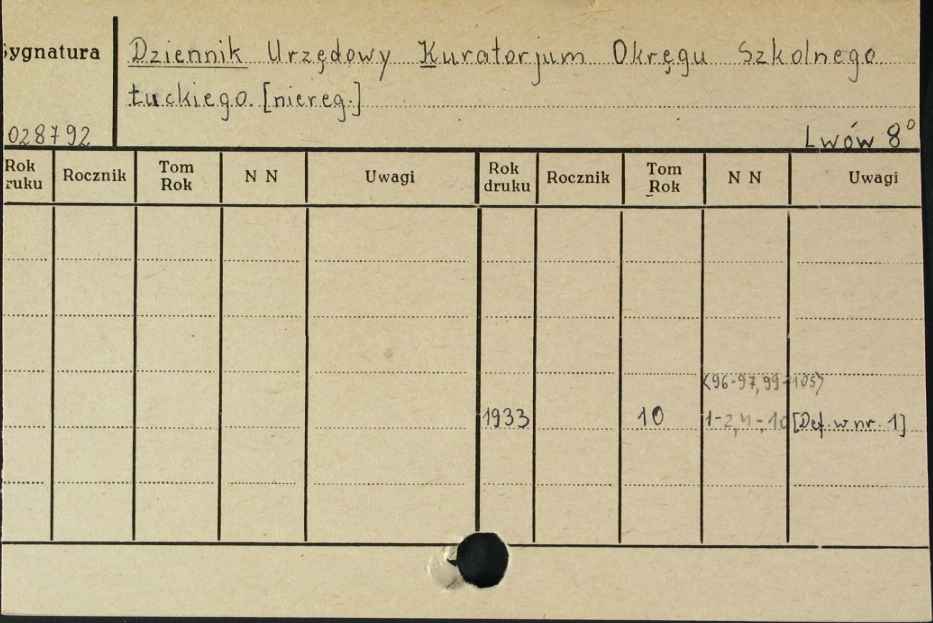 Sygnatura
Dziennik Urzędowy Kuratorjum Okręgu Szkolnego
Łuckiego. [niereg.]
028792
Lwów 8°
Rok druku Rocznik Tom Rok N N Uwagi Rok druku Rocznik Tom Rok N N Uwagi
<96-97, 99-105>
1933 10 1-2, 4-10 [Def. w nr. 1]